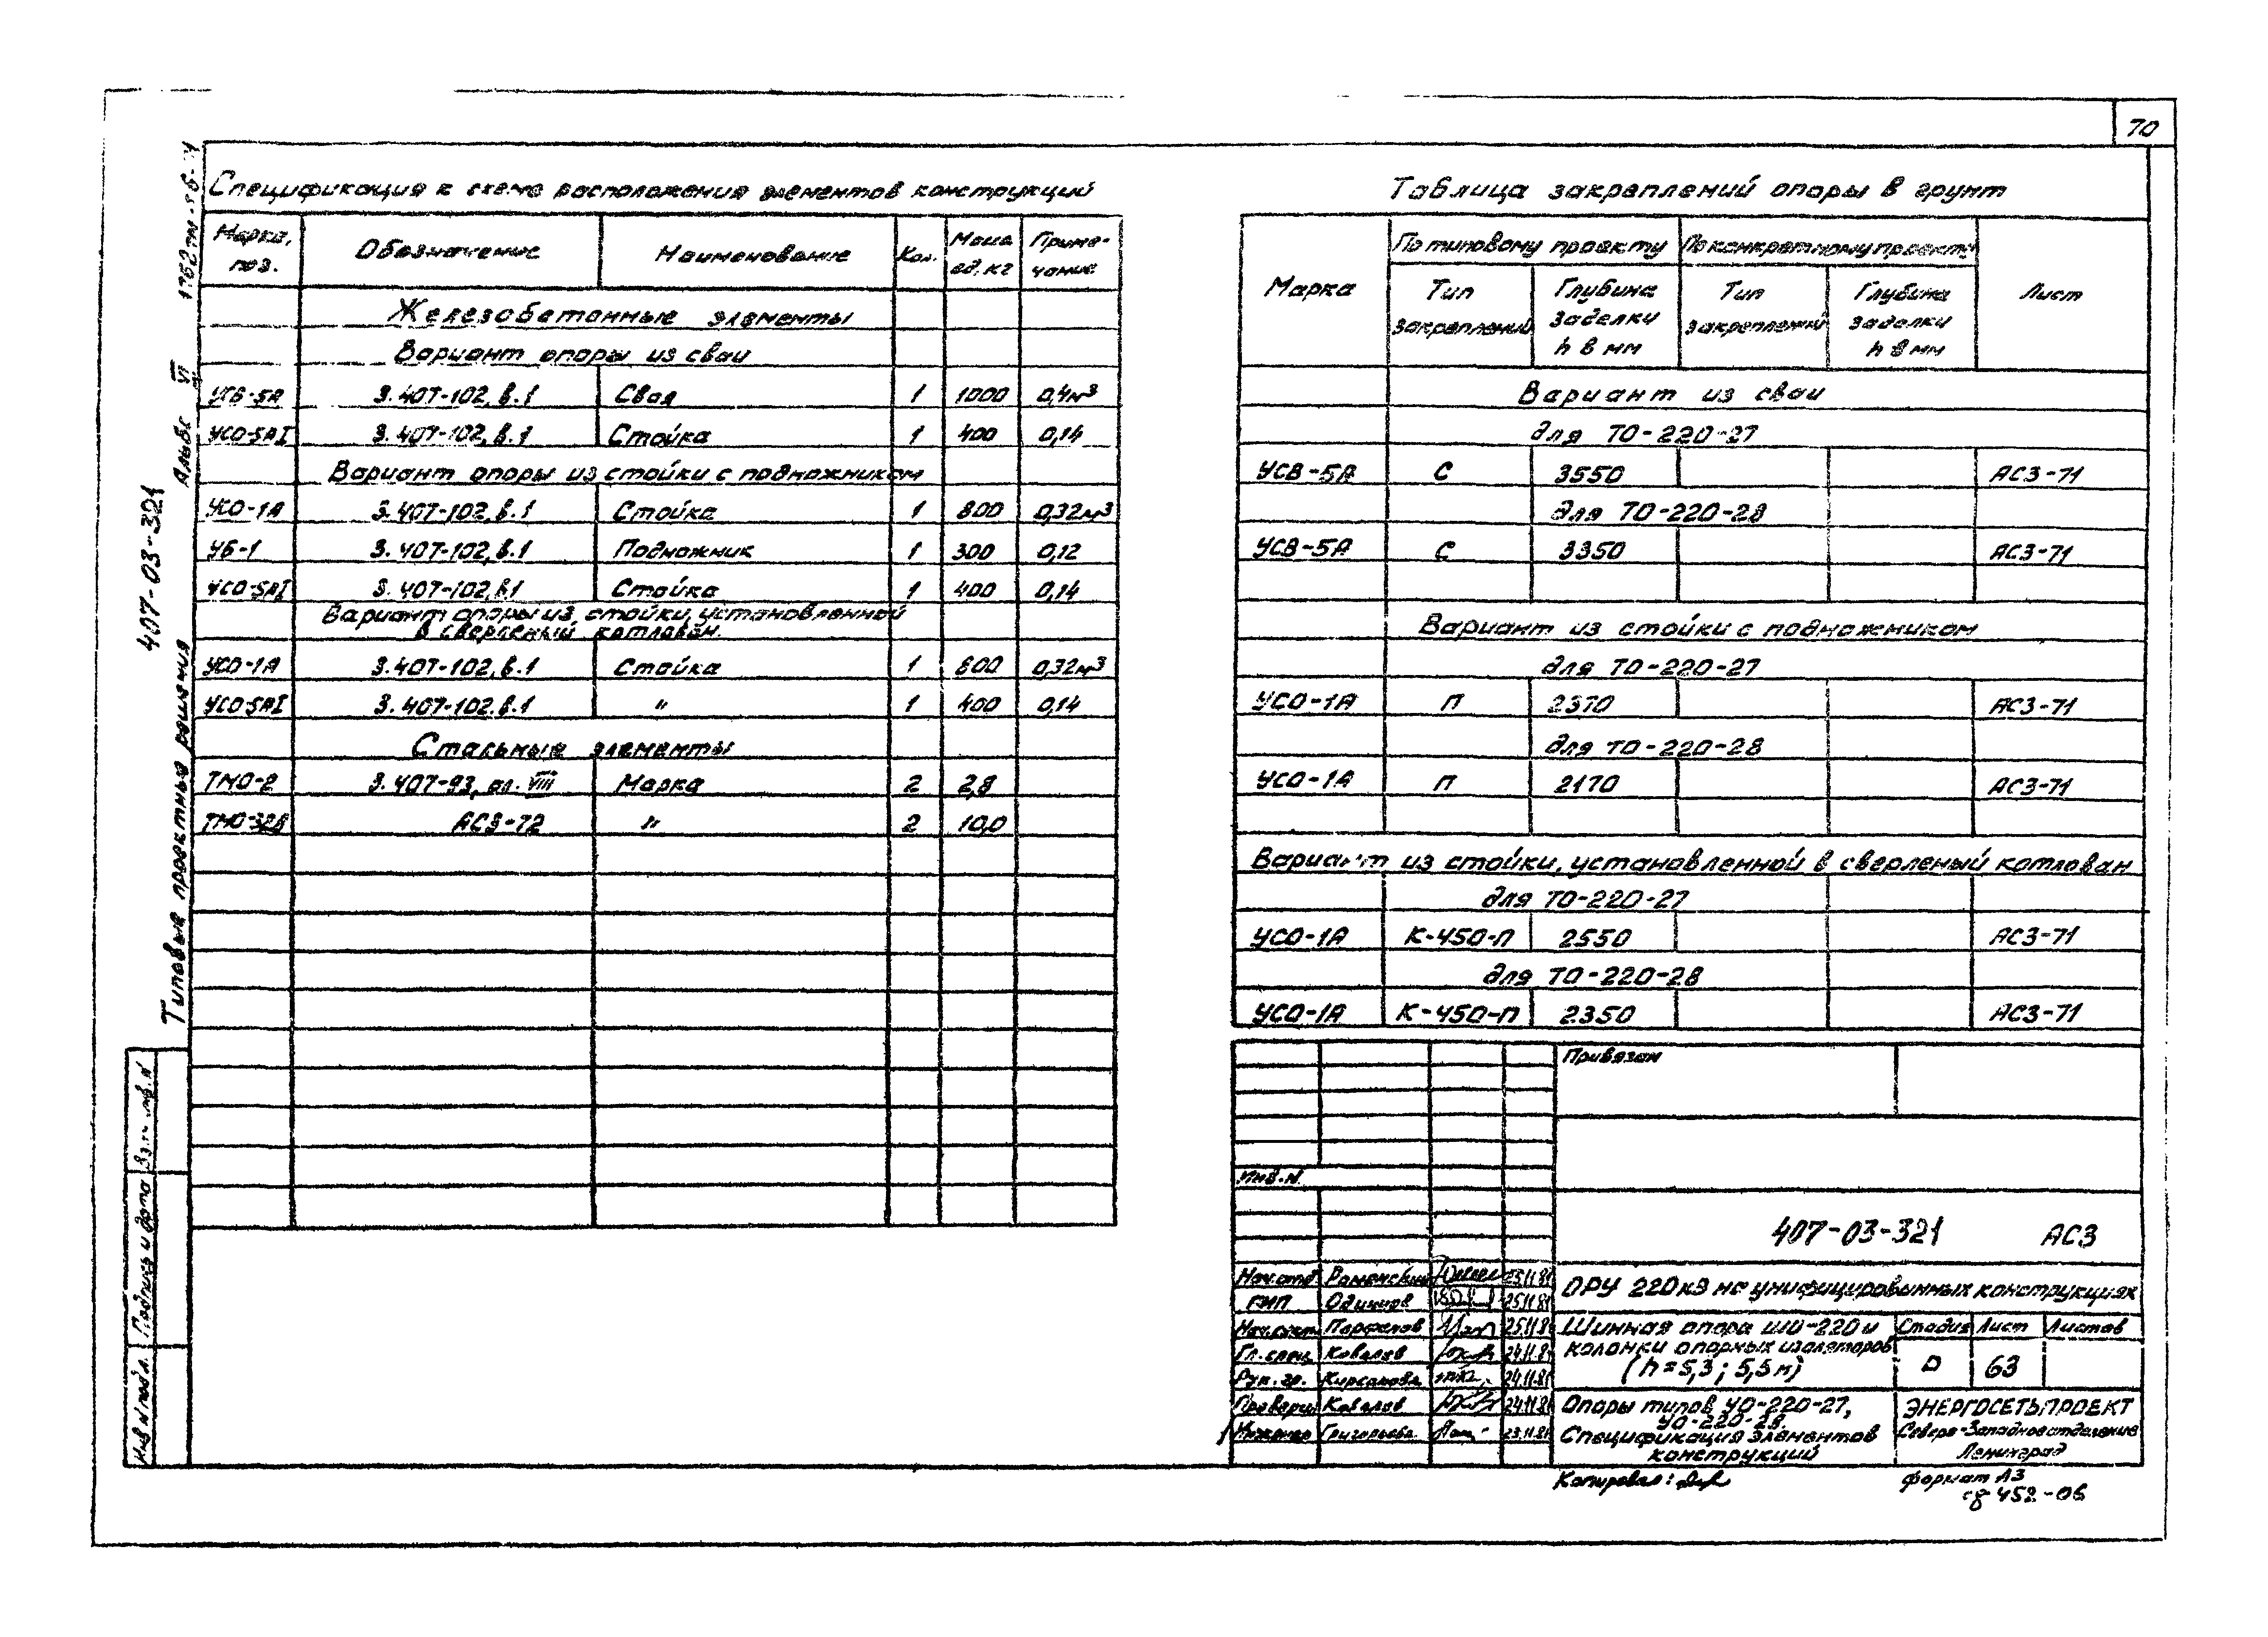 70
Спецификация к схеме расположения элементов конструкций
Марка, поз. Обозначение Наименование Кол. Масса ед. кг Примечание
Железобетонные элементы
Вариант опоры из сваи
3.407-102, в.1 Свая 1 1000 0,4м³
УСО-5АI 3.407-102, в.1 Стойка 1 400 0,14
Вариант опоры из стойки с подножником
УСО-1А 3.407-102, в.1 Стойка 1 800 0,32м³
УБ-1 3.407-102, в.1 Подножник 1 300 0,12
УСО-5АI 3.407-102, в.1 Стойка 1 400 0,14
Вариант опоры из стойки, установленной
в сверленый котлован.
УСО-1А 3.407-102, в.1 Стойка 1 800 0,32м³
УСО-5АI 3.407-102. в.1 " 1 400 0,14
Стальные элементы
ТМО-2 3.407-93, ал. VIII Марка 2 2,8
АС3-72 " 2 10,0
Таблица закреплений опоры в грунт
Марка По типовому проекту По конкретному проекту Лист
Тип закреплений Глубина заделки h в мм Тип закреплений Глубина заделки h в мм
Вариант из сваи
для ТО-220-27
УСВ-5А С 3550 АС3-71
для ТО-220-28
УСВ-5А С 3350 АС3-71
Вариант из стойки с подножником
для ТО-220-27
УСО-1А П 2370 АС3-71
для ТО-220-28
УСО-1А П 2170 АС3-71
Вариант из стойки, установленной в сверленый котлован
для ТО-220-27
УСО-1А К-450-П 2550 АС3-71
для ТО-220-28
УСО-1А К-450-П 2350 АС3-71
Привязан
Инв. N
407-03-321 АС3
Нач.отд. Роменский 25.11.81
ГИП Одинцов 25.11.81
Парфенов 25.11.81
Гл. спец. Ковалев 24.11.81
Рук. гр. Кирсанова 24.11.81
Проверил Ковалев 24.11.81
Инженер Григорьева 23.11.81
ОРУ 220кВ на унифицированных конструкциях
Шинная опора ШО-220 и
колонки опорных изоляторов
(h=5,3; 5,5м)
Стадия Лист Листов
Р 63
Опоры типов УО-220-27,
УО-220-28.
Спецификация элементов
конструкций
ЭНЕРГОСЕТЬПРОЕКТ
Северо-Западное отделение
Ленинград
Копировал:
формат А3
407-03-321
Типовые проектные решения
Альбом VI
Взам. инв. N
Подпись и дата
Инв N подл.